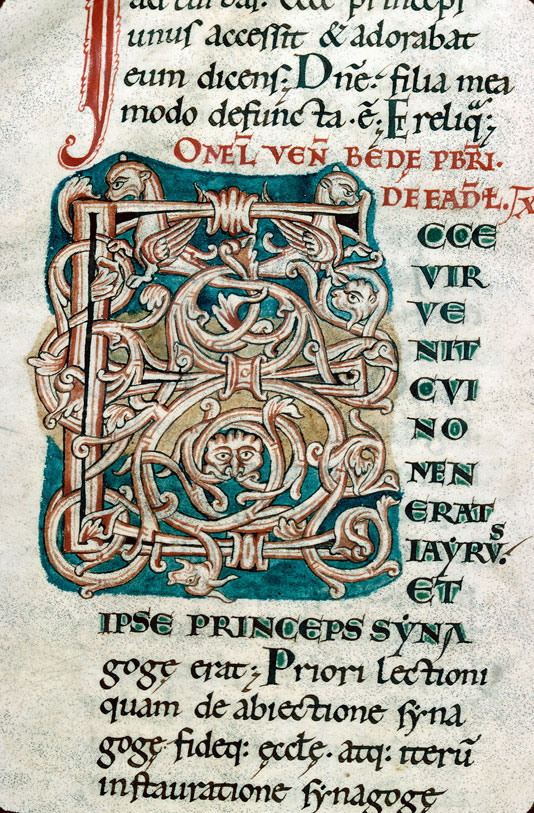 unus accessit & adorabat
eum dicens; Dñe. filia mea
modo defuncta. ē; Et reliq̄;
OMEL̄ VEN̄ BEDĘ PBR̄I.
DE EAD̄
ECCE
VIR
VE
NIT
CVI
NO
MEN
ERAT
IAẎRVS.
ET
IPSE PRINCEPS SẎNA
gogę erat; Priori lectioni
quam de abiectione sẏna
gogę fideq: ęccłę. atq: iterū
instauratione sẏnagogę